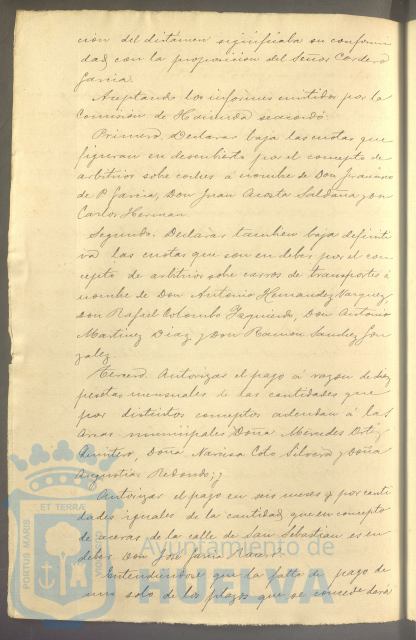 ción del dictámen significaba su conformi
dad con la proposicion del Señor Cordero
Garcia.
Aceptando los informes emitidos por la
Comision de Hacienda se acordó:
Primero. Declarar baja las cuotas que
figuran en descubierto por el concepto de
arbitrios sobre coches á nombre de Don Francisco
de P. Garcia, Don Juan Acosta Saldaña y Don
Carlos Herman.
Segundo. Declarar tambien baja definiti
va las cuotas que son en deber por el con
cepto de arbitrios sobre carros de transporte á
nombre de Don Antonio Hernandez Vazquez,
Don Rafael Colombo Izquierdo, Don Antonio
Martinez Diaz y Don Ramon Sanchez Gon
zalez.
Tercero. Autorizar el pago á razón de diez
pesetas mensuales de las cantidades que
por distintos conceptos adeudan á las
Arcas municipales, Doña Mercedes Ortiz
Quintero, Doña Narcisa Colo Silvera y Doña
Angustias Redondo; y
Autorizar el pago en seis meses y por canti
dades iguales de la cantidad que en concepto
de aceras de la calle de San Sebastian es en
deber Don José Maria
Entendiendose que la falta de pago de
uno solo de los plazos que se concede dará
PORTUS MARIS
ET TERRÆ
Ayuntamiento de
HUELVA